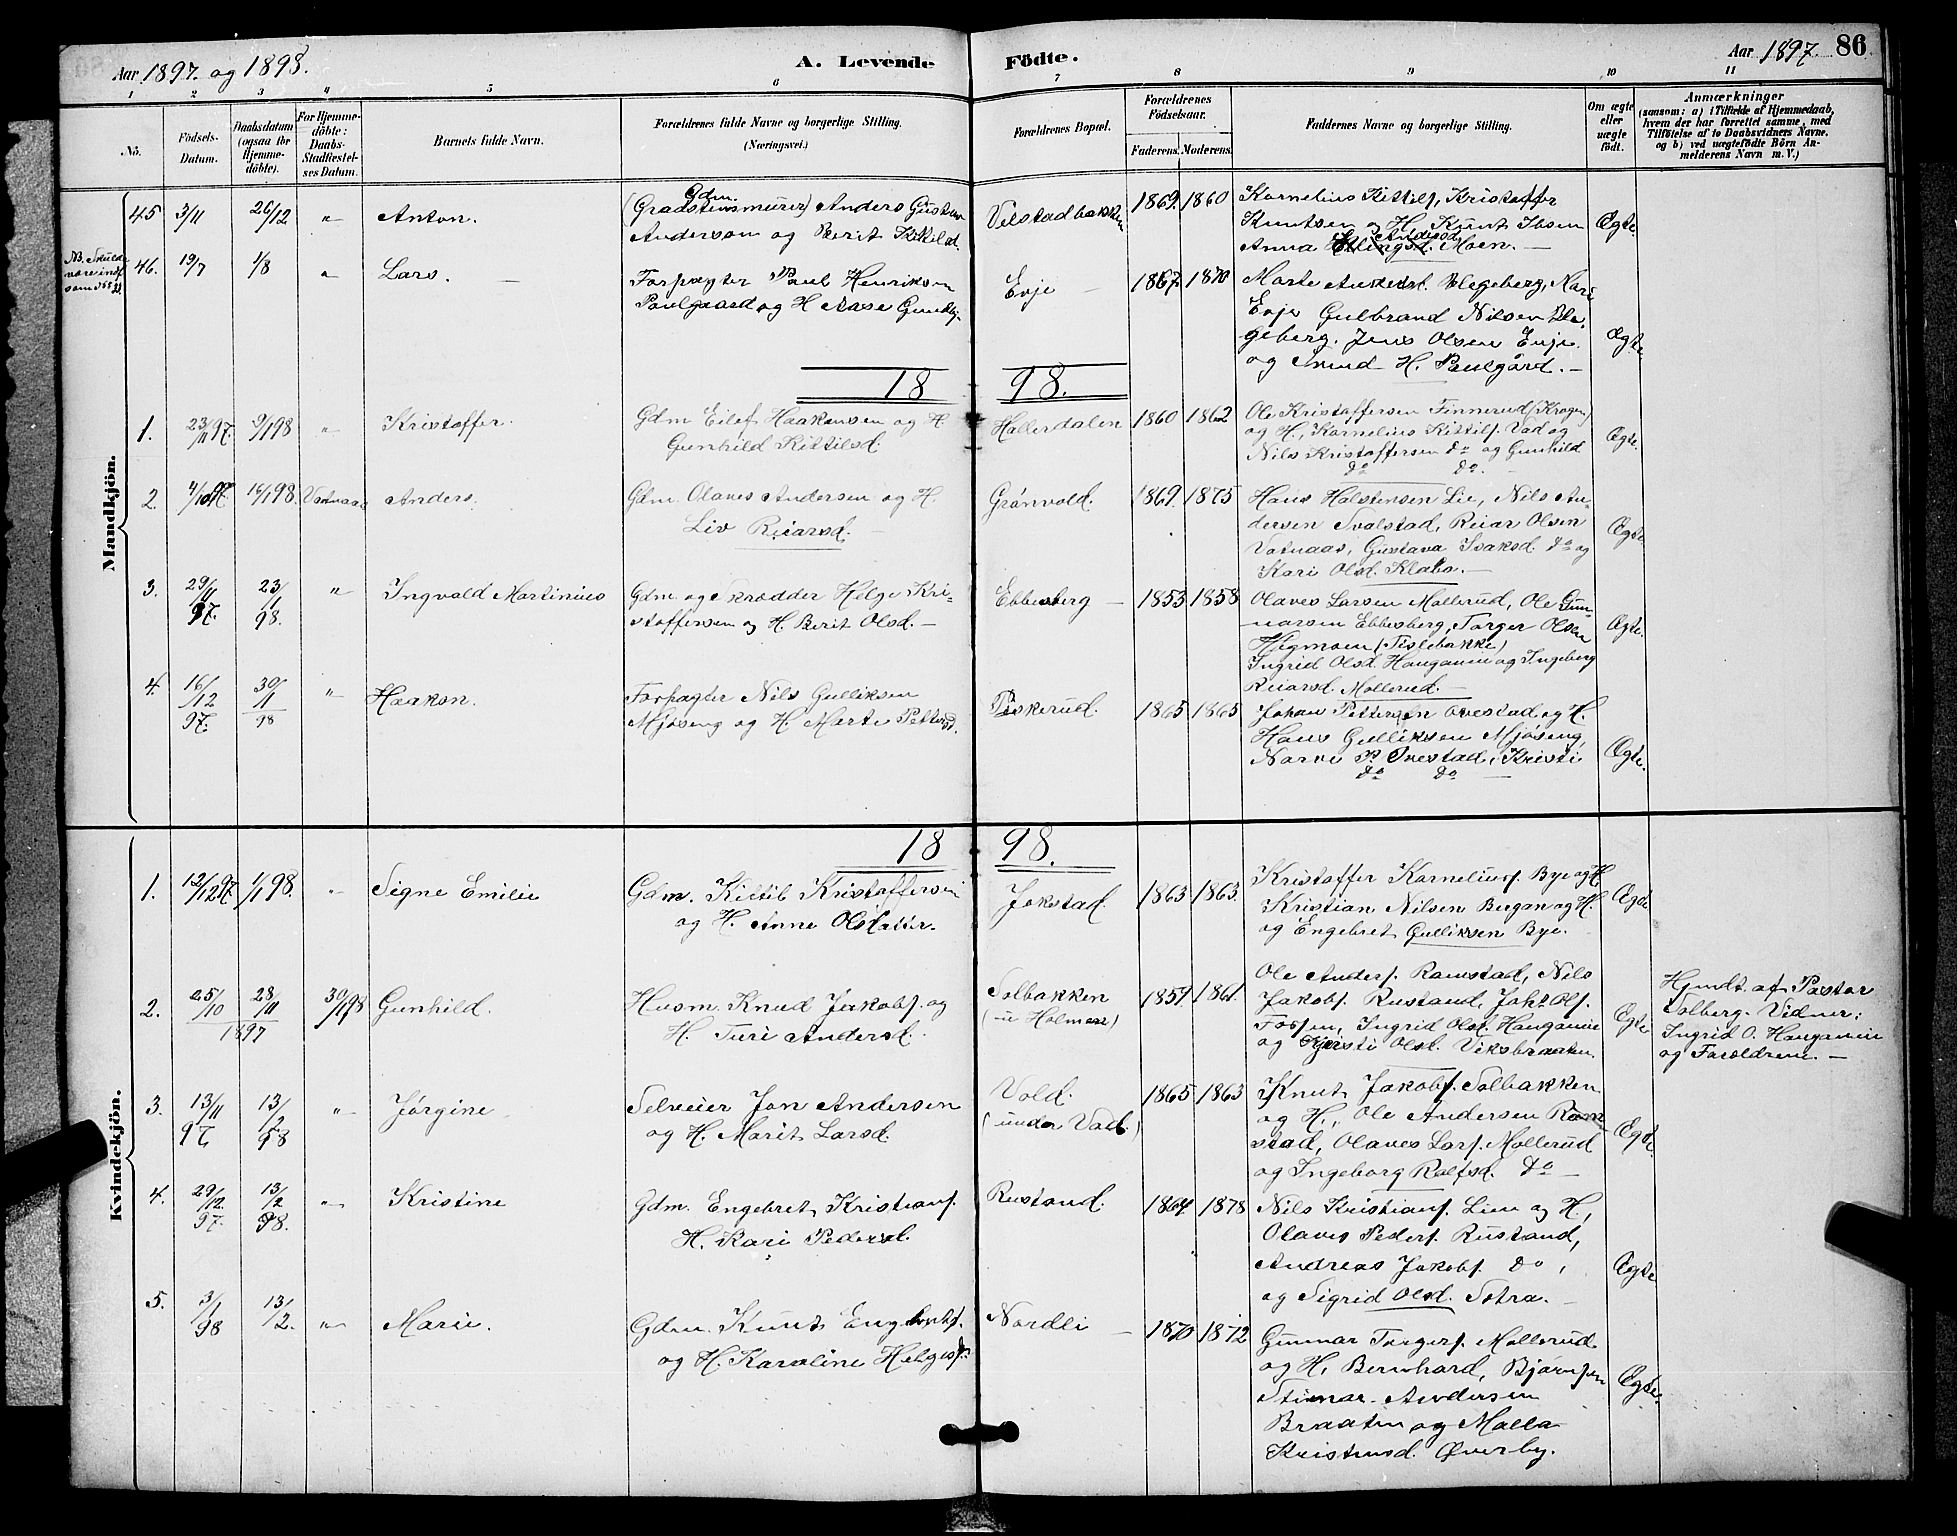 Aar 1897. og 1898.
A. Levende
Födte.
Aar 1897.
86
1 2 3 4 5 6 7 8 9 10 11
No.
Födsels-
Datum.
Daabsdatum
(ogsaa for
Hjemme-
döbte).
For Hjemme-
döbte:
Daabs-
Stadfæstel-
ses Datum.
Barnets fulde Navn.
Forældrenes fulde Navne og borgerlige Stilling.
(Næringsvei.)
Forældrenes Bopæl.
Forældrenes
Fødselsaar.
Faderens. Moderens.
Faddernes Navne og borgerlige Stilling.
Om ægte
eller
uægte
födt.
Anmærkninger
(saasom: a) i Tilfælde af Hjemmedaab,
hvem der har forrettet samme, med
Tilföielse af to Daabsvidners Navne,
og b) ved uægtefödte Börn An-
melderens Navn m. V.)
Mandkjön.
45 3/11 26/12 " Anton.
Gdm.
(Graastensmurer) Anders Gustav
Andersen og Berit Kittilsd.
Velstadbakken
1869. 1860
Kornelius Kittils., Kristoffer
Knutsen og H. Knut Ibsen
Andersd.
Anna Ellingsd. Moen. —
Ægte.
NB. Skulde
være indf.
som
46. 19/7 1/8 " Lars. —
Forpagter Paul Henriksen
Paulgaard og H Aase
Evje —
1867. 1870
Marte Andersd. Blegeberg, Kari
Evje Gulbrand Nilsen Ble-
geberg. Jens Olsen Evje.
og H. Paulgård. —
Ægte
18 98.
1. 23/11 97. 9/1 98 " Kristoffer.
Gdm Eilef Haakensen og H.
Gunhild Kittilsd.
Hallerdalen
1860 1862
Ole Kristoffersen Finnerud (Kragen)
og H., Kornelius Kittils. Vad og
Nils Kristoffersen do og Gunhild
do do. —
Ægte.
2. 4/10 97. 16/1 98. Vatnaas Anders.
Gdm. Olaves Andersen og H.
Liv Reiarsd. —
Grønvold.
1869. 1875
Hans Halstensen Lie, Nils An-
dersen Svalstad, Reiar Olsen
Vatnaas, Gustava Isaksd. do og
Kari Olsd. Klaba. —
Ægte.
3. 29/11 97. 23/1 98. " Ingvald Martinius
Gdm. og Skrædder Helge Kri-
stoffersen og H. Berit Olsd. —
Ebbesberg —
1853 1858
Olaves Larsen Mollerud, Ole Gun-
narsen Ebbesberg, Torger Olsen
Hegmoen (Tislebakke)
Ingrid Olsd. Hauganeie og Ingeberg
Reiarsd. Mollerud. —
Ægte.
4. 16/12 97. 30/1 98 " Haakon.
Forpagter Nils Gulliksen
Mjøseng og H. Marte Pettersd.
Piskerud.
1865 1865
Johan Pettersen Ovestad og H.
Hans Gulliksen Mjøseng,
Narve P. Ovestad, Kristi
do do —
Ægte.
Kvindekjön.
18 98.
1. 12/12 97. 1/1 98. " Signe Emilie
Gdm. Kittil Kristoffersen
og H. Anne Olsdatter.
Jokstad.
1863 1863.
Kristoffer Kornelius. Bye og H.
Kristian Nilsen Bergan og H.
og Engebret Gulliksen Bye.
Ægte
2. 25/10 28/11 1897 30/1 98 Gunhild.
Husm. Knud Jakobs. og
H. Turi Andersd.
Solbakken
(u Holmen)
1857. 1861.
Ole Anders. Ramstad, Nils
Jakobs. Rustand, Johs Ols.
Fossen, Ingrid Olsd. Hauganeie
og Kjersti Olsd. Viksbraaten.
Ægte
Hjmdt. af Pastor
Solberg. Vidner:
Ingrid O. Hauganeie
og Forældrene. —
3. 13/11 97. 13/2 98 " Jørgine
Selveier Jon Andersen
og H. Marit Larsd.
Vold.
(under Vad.)
1865 1863
Knut Jakobs. Solbakken
og H., Ole Andersen Ram
stad, Olaves Lars. Mollerud
og Ingeborg Rolfsd. do —
Ægte.
4. 29/12. 97. 13/2 98. " Kristine
Gdm. Engebret Kristians.
H. Kari Pedersd.
Rustand.
1864. 1878
Nils Kristians. Lien og H.,
Olaves Peders. Rustand,
Andreas Jakobs. do,
og Sigrid Olsd. Sotra. —
Ægte
5. 3/1 98 13/2. " Marie.
Gdm. Knut Engebrets.
og H. Karoline Helgesd.
Nordli —
1870 1872
Gunnar Torgers. Mollerud
og H, Bernhard, Bjørnsen
Stimar. Andersen
Braaten og Malla
Kristensd Øverby.
Ægte.